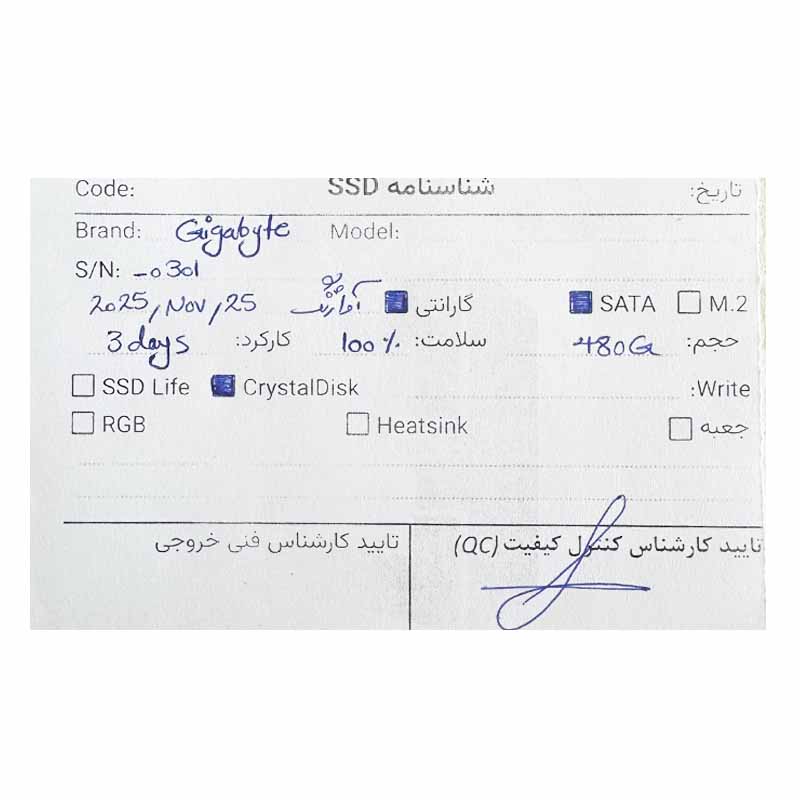 Code: شناسنامه SSD تاریخ:
Brand: Gigabyte Model:
S/N: -0301
M.2 SATA گارانتی آواژنگ 2025, Nov, 25
حجم: 480G سلامت: 100% کارکرد: 3 days
SSD Life CrystalDisk Write:
RGB Heatsink جعبه
تایید کارشناس کنترل کیفیت (QC) تایید کارشناس فنی خروجی